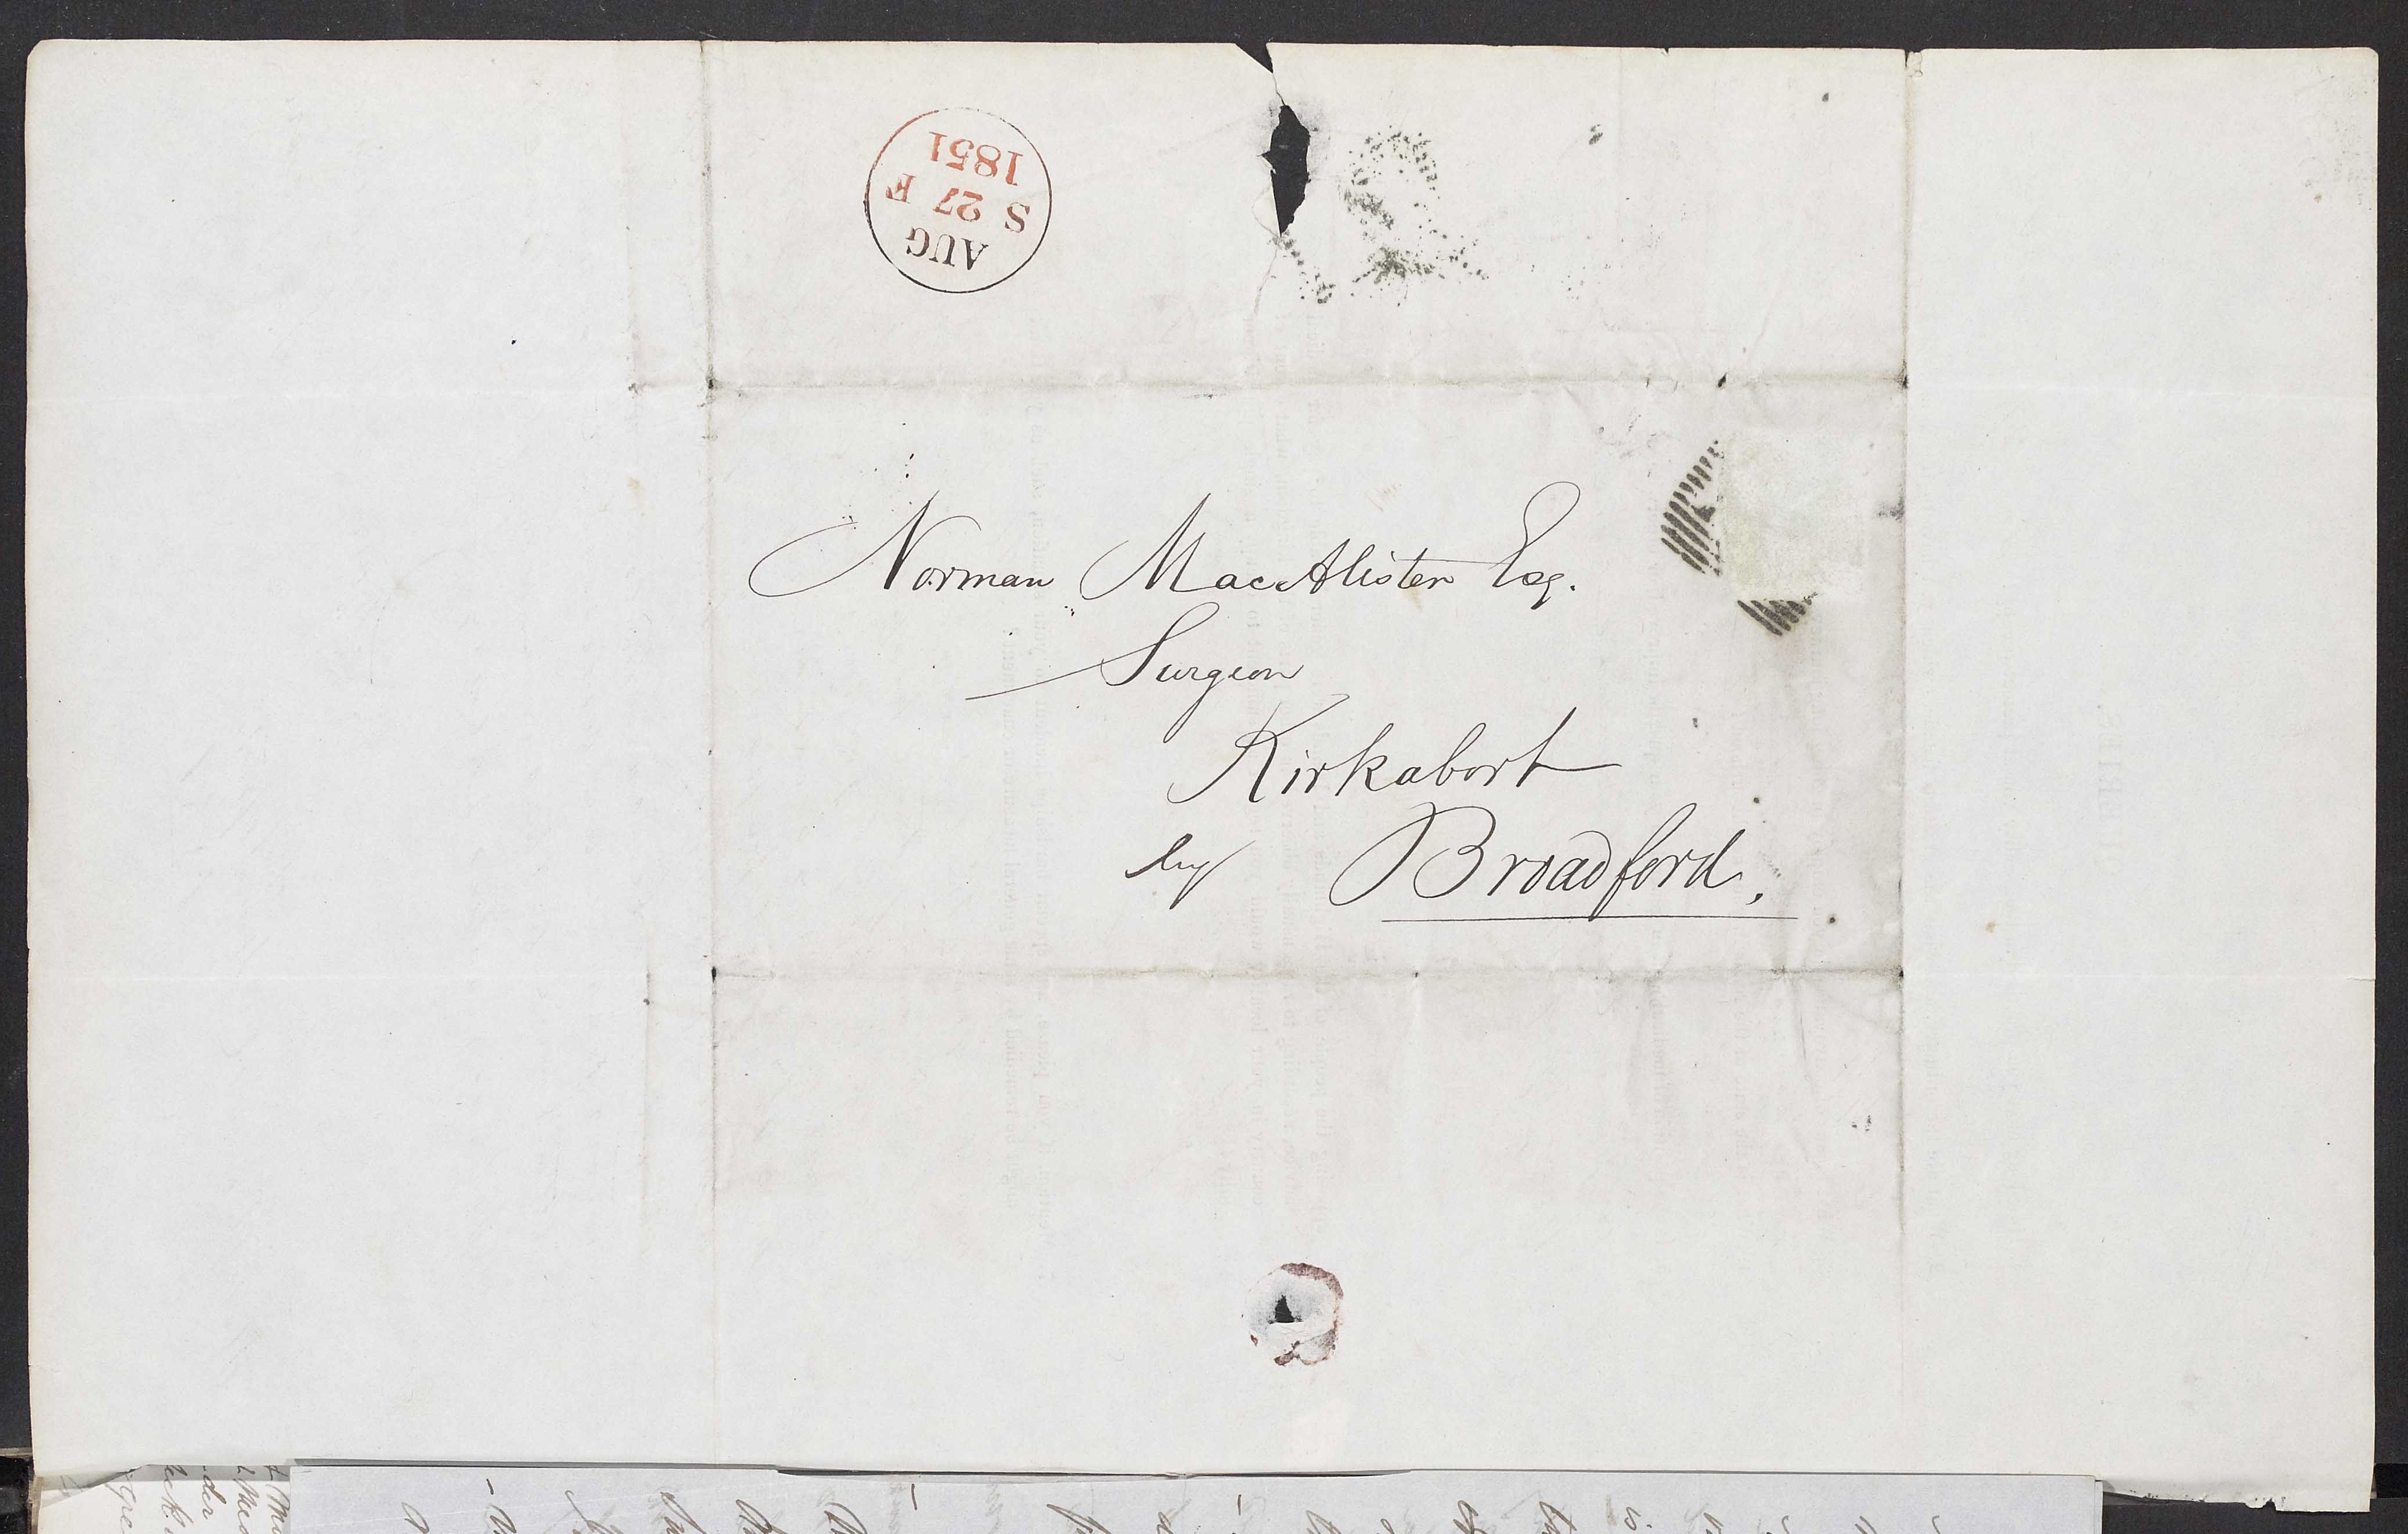 AUG
S 27 F
1851
Norman MacAlister Esq.
Surgeon
Kirkabort
by Broadford.